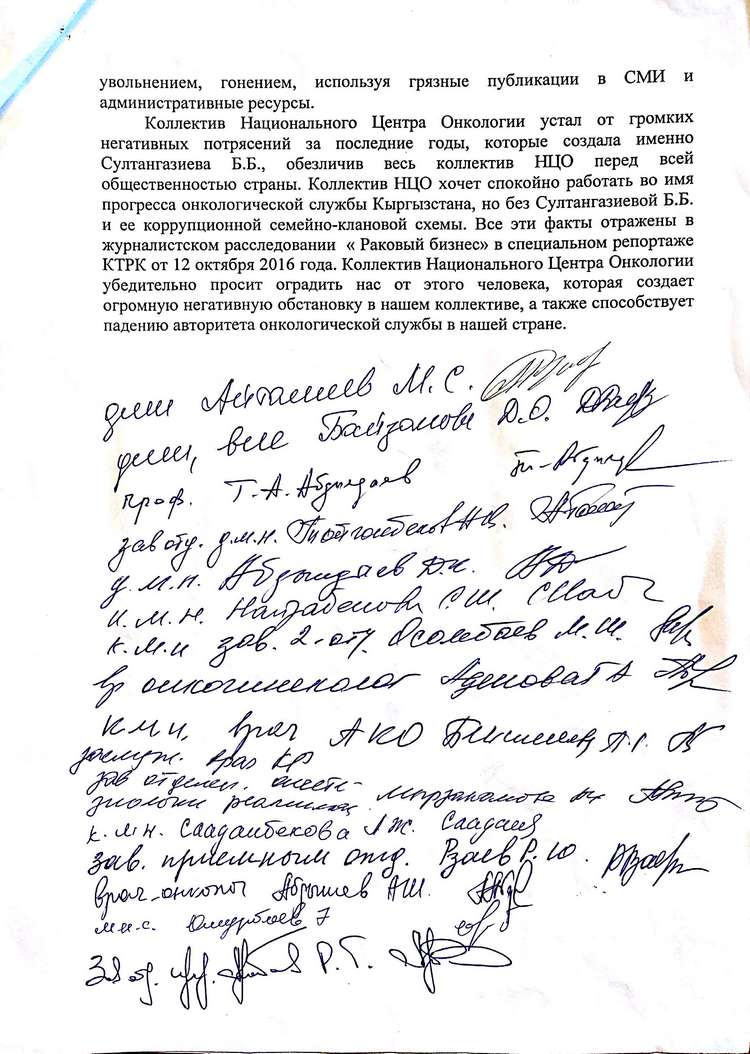 увольнением, гонением, используя грязные публикации в СМИ и
административные ресурсы.
Коллектив Национального Центра Онкологии устал от громких
негативных потрясений за последние годы, которые создала именно
Султангазиева Б.Б., обезличив весь коллектив НЦО перед всей
общественностью страны. Коллектив НЦО хочет спокойно работать во имя
прогресса онкологической службы Кыргызстана, но без Султангазиевой Б.Б.
и ее коррупционной семейно-клановой схемы. Все эти факты отражены в
журналистском расследовании « Раковый бизнес» в специальном репортаже
КТРК от 12 октября 2016 года. Коллектив Национального Центра Онкологии
убедительно просит оградить нас от этого человека, которая создает
огромную негативную обстановку в нашем коллективе, а также способствует
падению авторитета онкологической службы в нашей стране.
М.С.
Д.О.
проф. Т.А. Абдылдаев
зав отд. д.м.н.
д.м.н. Абдылдаев Д.К.
к.м.н. С.Ш.
к.м.н зав. 2-отд. Осомбаев М.Ш.
вр онкогинеколог
кмн, врач АКО
заслуж. врач КР
зав отделен. анесте-
зиологии
к.м.н. Саадамбекова А.Ж.
зав. приемным отд. Рзаев Р.Ю.
врач-онколог Абдышев А.Ш.
м.н.с.
Зав отд. Р.Т.